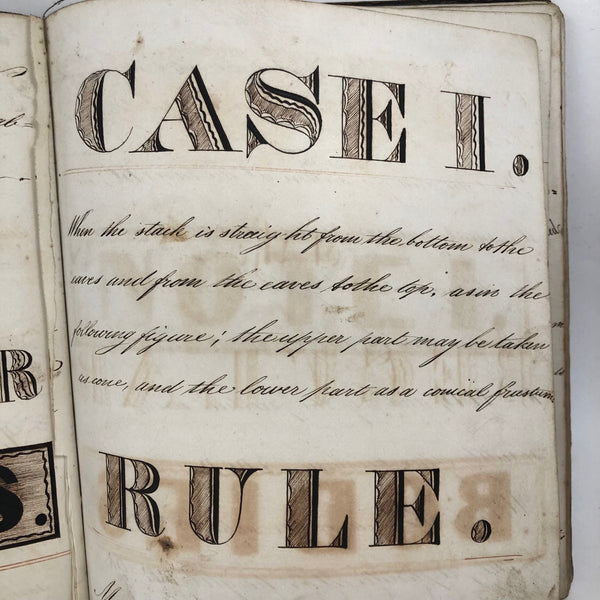 CASE I.
When the stack is straight from the bottom to the
eaves and from the eaves to the top, as in the
following figure; the upper part may be taken
as cone, and the lower part as a conical frustum
RULE.
R
S.